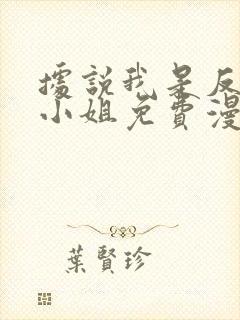 據說我是反
小姐免費漫
葉賢珍